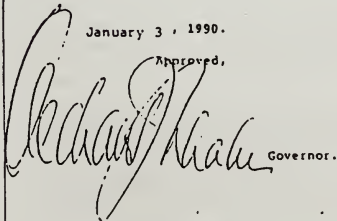 January 3, 1990.
Approved,
Governor.